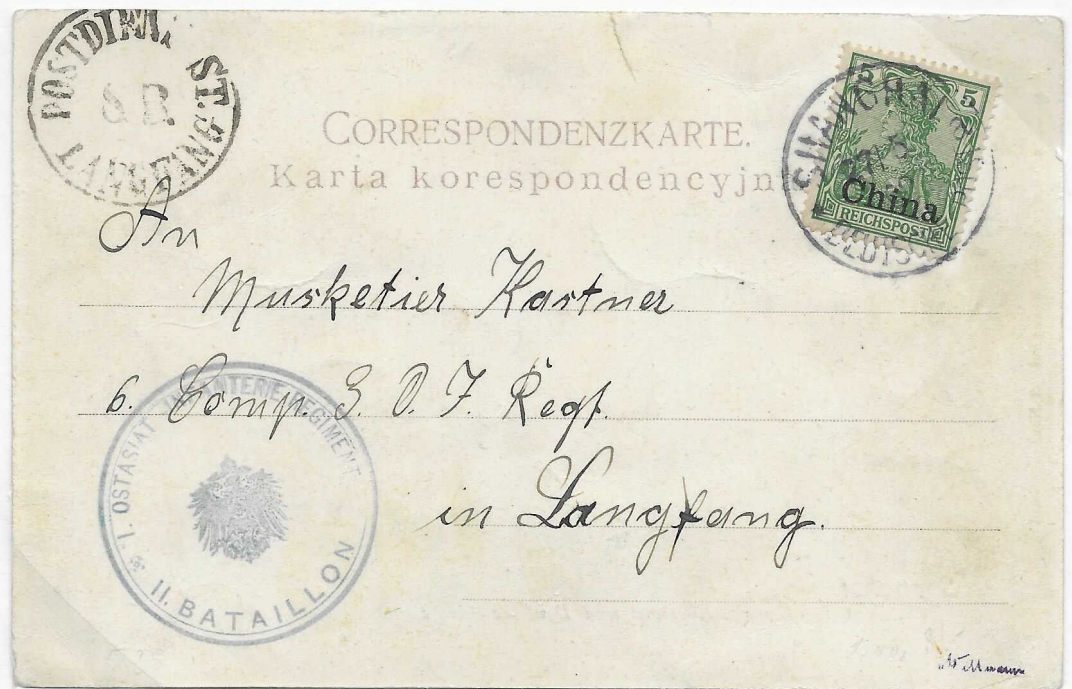 POSTDIREKT ST. 9.
S. B.
LANGFANG
CORRESPONDENZKARTE.
Karta korespondencyjn
5
China
REICHSPOST
SHANGHAI
An
Musketier Kastner
6. Comp. 3. O. J. Regt.
in Langfang.
1. OSTASIAT. INFANTERIE-REGIMENT
II. BATAILLON